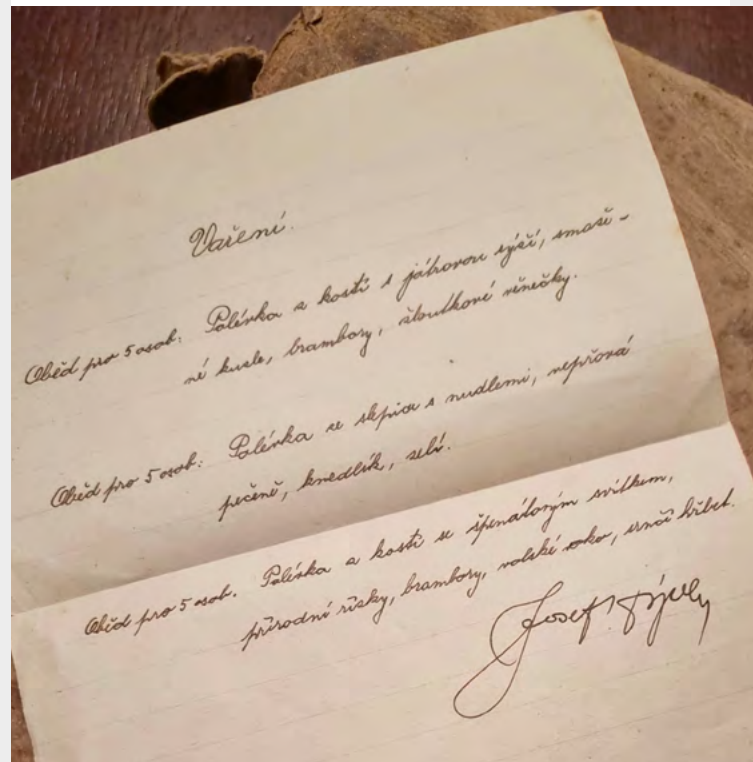 Vaření.
Oběd pro 5 osob: Polévka z kostí s játrovou rýží, smaže-
né kusle, brambory, žloutkové věnečky.
Oběd pro 5 osob: Polévka ze slepice s nudlemi, vepřová
pečeně, knedlík, zelí.
Oběd pro 5 osob. Polévka z kostí se špenátovým svítkem,
přírodní řízky, brambory, volské oko, srnčí hřbet.
Josef